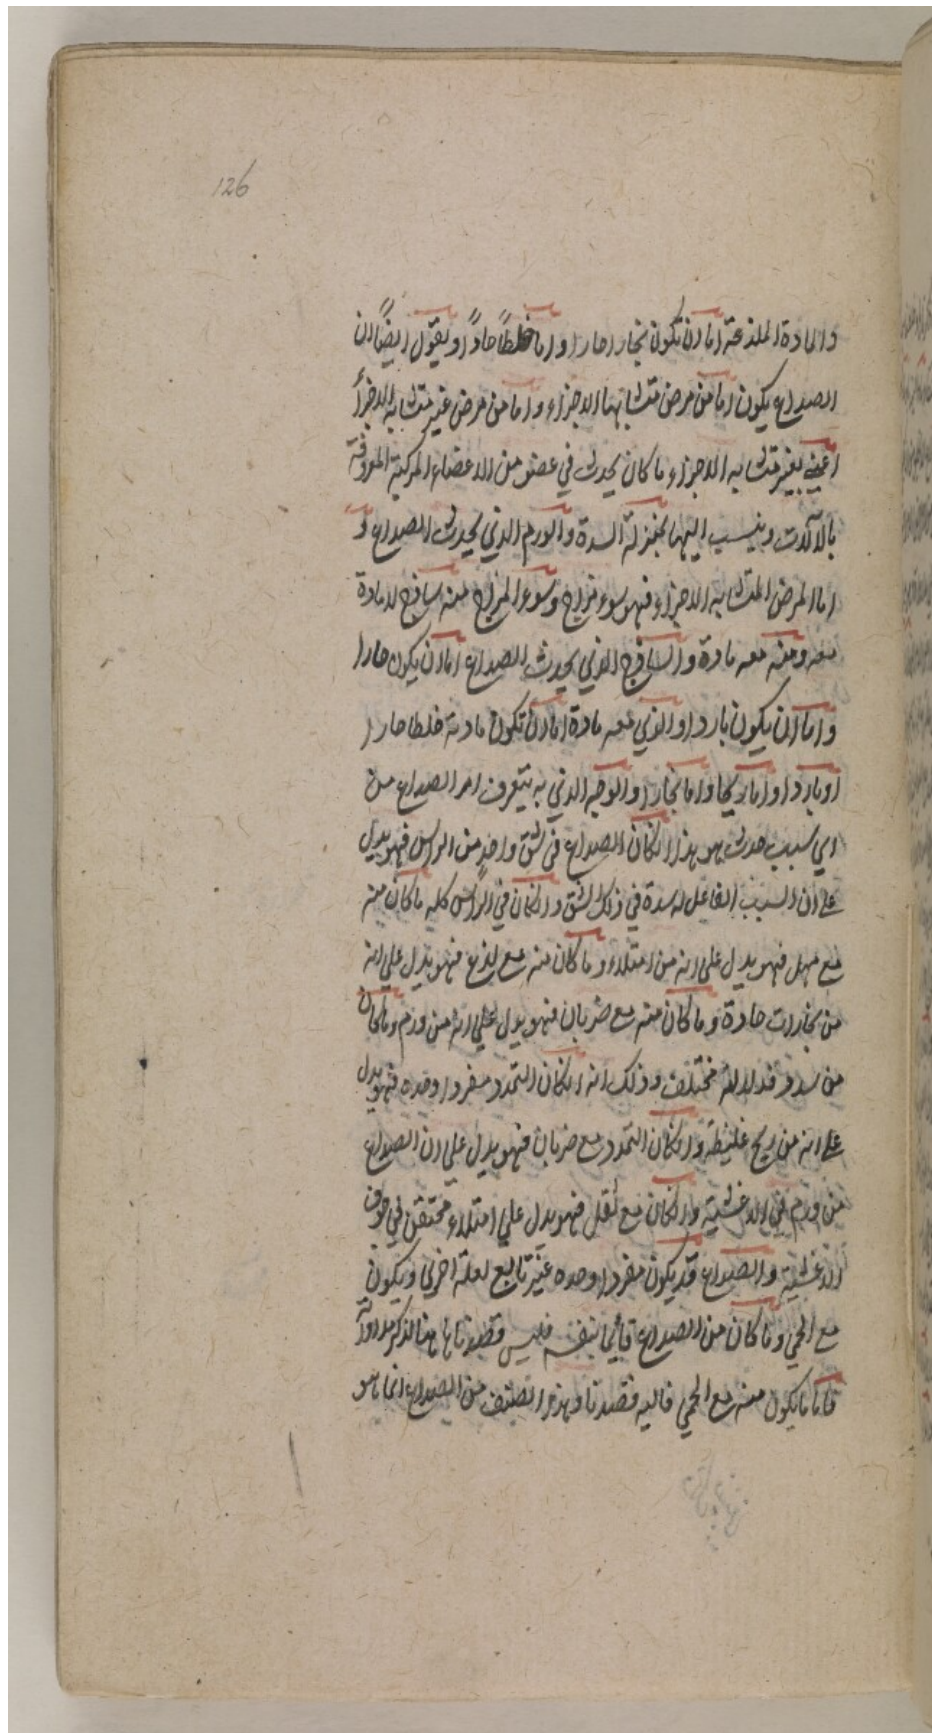 126
والمادة الملذعة اما ان تكون بخارا حارا واما خلطاً حاداً ونقول ايضاً ان
الصداع يكون اما من مرض متشابهما الاجزاء واما من مرض غير متشابه الاجزأ
اعني بغير متشابه الاجزاء ما كان يحدث في عضو من الاعضاء المركبة المعروفة
بالآلات وينسب اليها بمنزلة السدة والورم الذي يحدث الصداع و
اما المرض المتشابه الاجزاء فهو سوء مزاج وسوء المزاج منه ساذج لا مادة
معه ومنه معه مادة والساذج الذي يحدث الصداع اما ان يكون حارا
واما ان يكون باردا والذي معه مادة اما ان تكون مادته خلطا حارا
او باردا واما ريحا واما بخارا والوجه الذي به يتعرف امر الصداع من
اي سبب حدث هو هذا ان كان الصداع في شق واحد من الراس فهو يدل
على ان السبب الفاعل له سدة في ذلك الشق وان كان في الراس كله ما كان منه
مع فهو يدل على انه من امتلاء وما كان منه مع لذع فهو يدل على انه
من بخارات حادة وما كان منه مع ضربان فهو يدل على انه من ورم وما كان
من فدلالته مختلفة وذلك انه ان كان التمدد مفردا وحده فهو يدل
على انه من ريح غليظة وان كان التمدد مع ضربان فهو يدل على ان الصداع
من ورم في الاغشية وان كان مع ثقل فهو يدل على امتلاء محتقن في جوف
الاغشية والصداع قد يكون مفردا وحده غير تابع لعلة اخرى ويكون
مع الحمى وما كان من الصداع قائما بنفسه فليس قصدنا هاهنا لذكر مداواته
فاما ما يكون منه مع الحمى فاليه قصدنا وهذا الصنف من الصداع انما هو